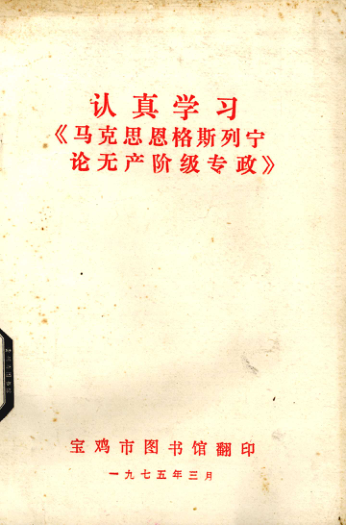 认真学习
《马克思恩格斯列宁
论无产阶级专政》
宝鸡市图书馆翻印
一九七五年三月